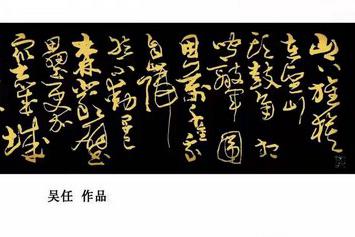 山下旌旗
在望山
头鼓角相
闻敵军围
困万千重我
自岿
然不动早已
森严壁
垒更加
众志成城
吴任 作品